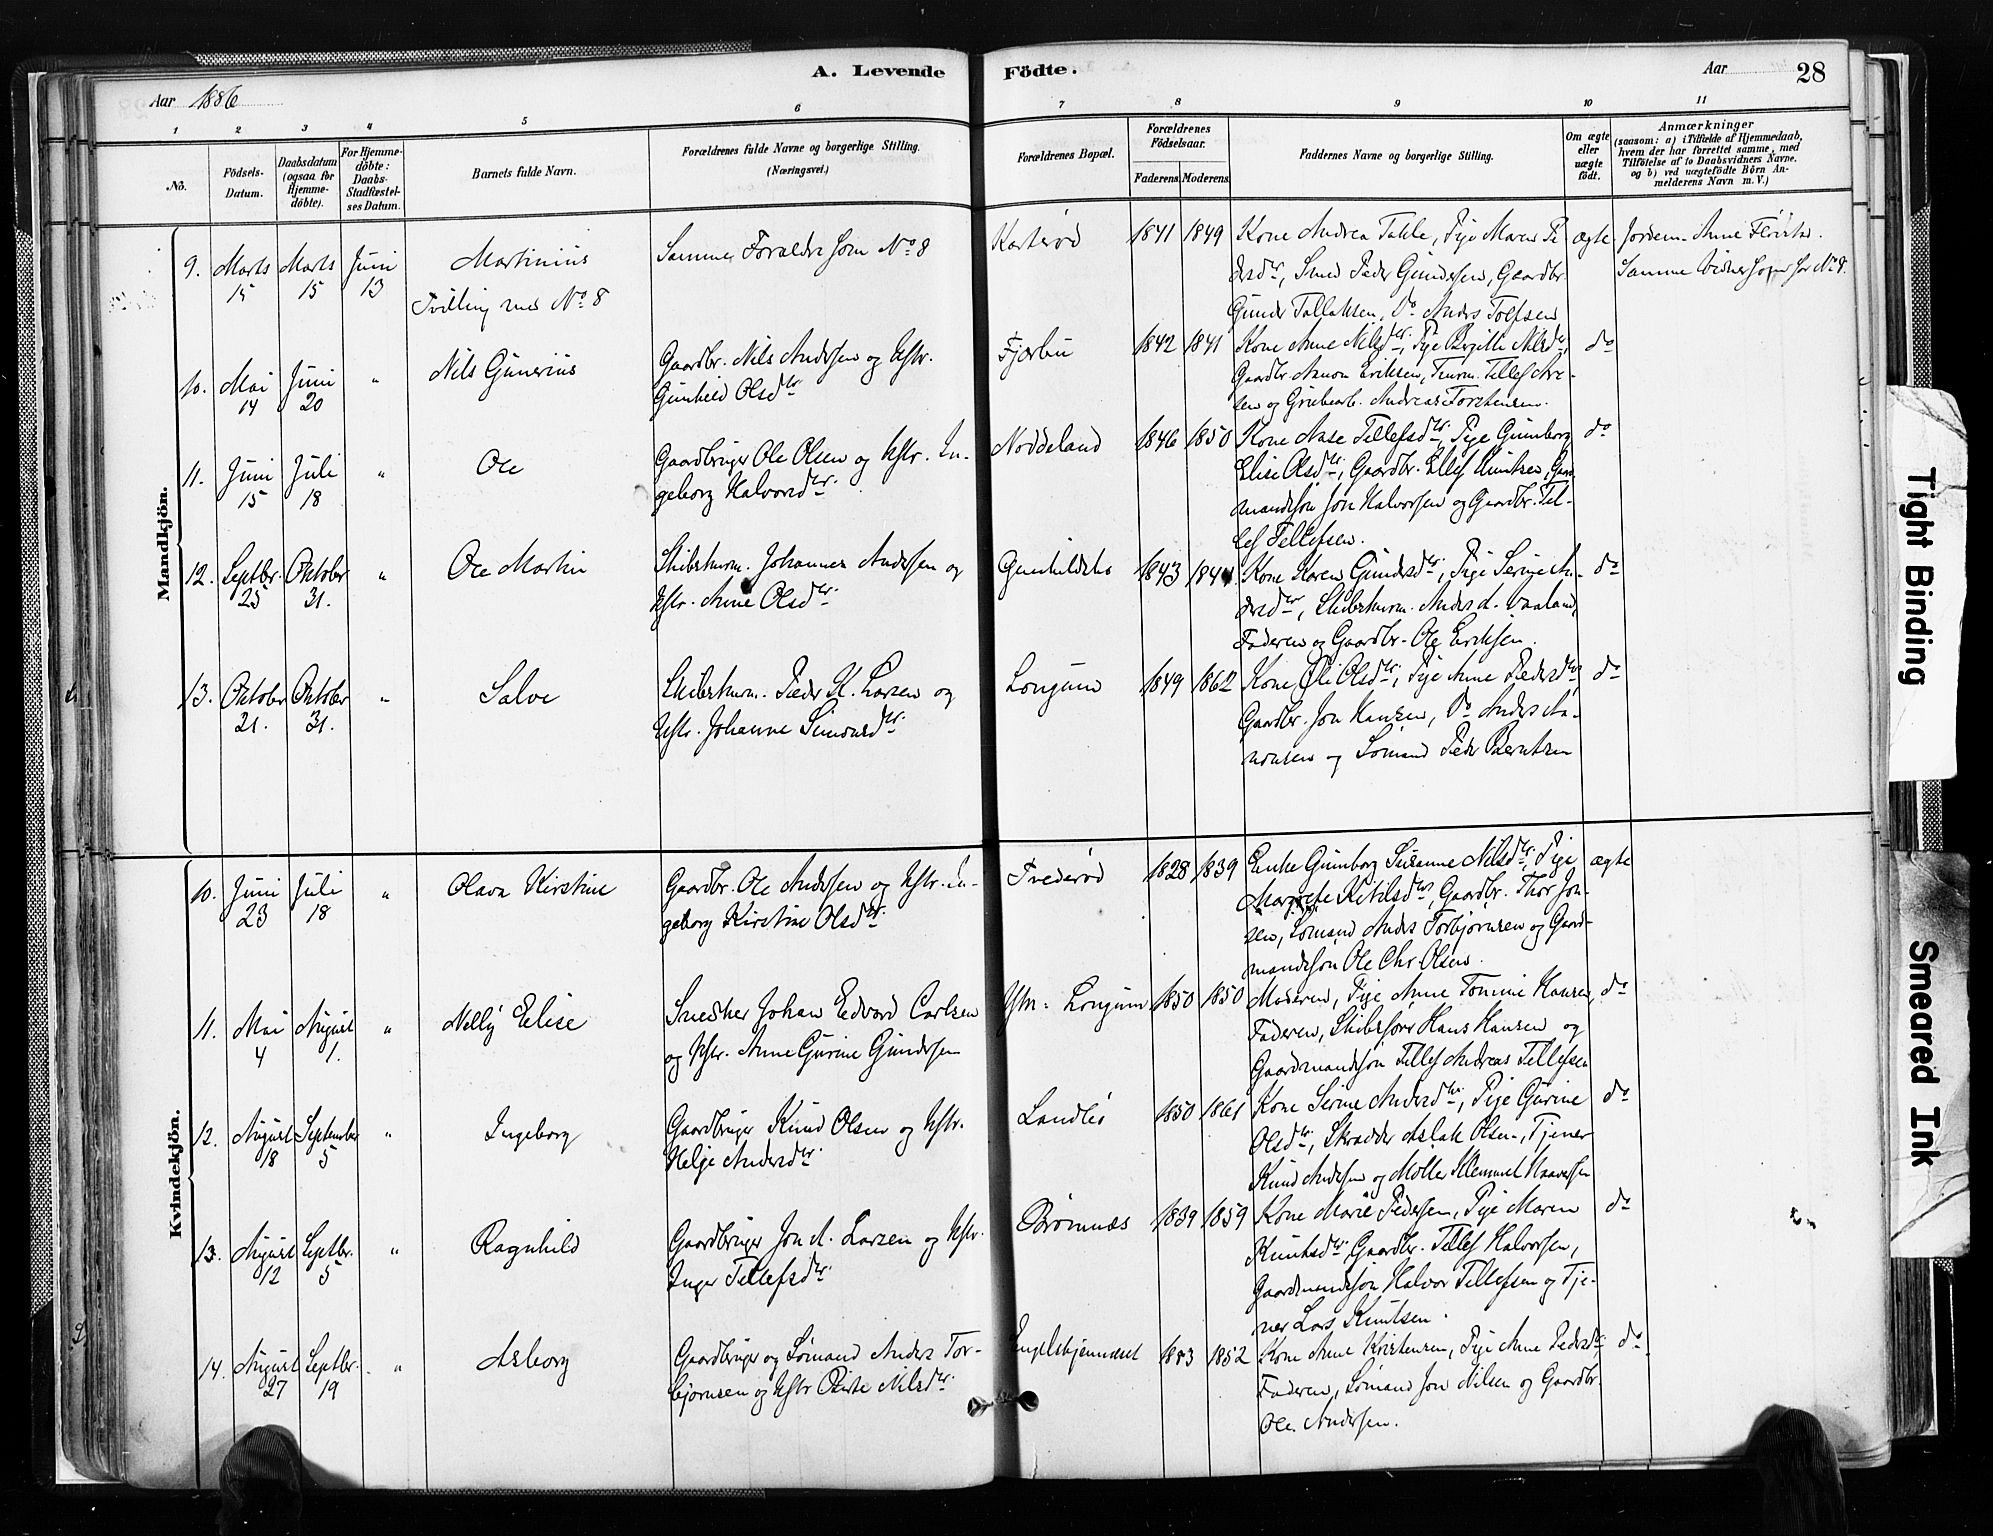 A. Levende Födte.
Aar 1886
Aar 28
1 2 3 4 5 6 7 8 9 10 11
No.
Födsels-Datum.
Daabsdatum (ogsaa for Hjemme-döbte).
For Hjemme-döbte: Daabs-Stadfæstel-ses Datum.
Barnets fulde Navn.
Forældrenes fulde Navne og borgerlige Stilling. (Næringsvei.)
Forældrenes Bopæl.
Forældrenes Födselsaar.
Faderens. Moderens.
Faddernes Navne og borgerlige Stilling.
Om ægte eller uægte födt.
Anmærkninger
(saasom: a) i Tilfælde af Hjemmedaab,
hvem der har forrettet samme, med
Tilföielse af to Daabsvidners Navne.
og b) ved uægtefödte Börn An-
melderens Navn m. V.)
Mandkjön.
9. Marts 15 Marts 15 Juni 13
Martinius
Tvilling med No 8
Samme Forældre som No 8
1841 1849
Kone Andrea Takle, Pige Maren Pe
dersdtr, Smed Peder Gundersen, Gaardbr.
Gunder Tallaksen, Do Anders Toefsen
ægte
Jordem. Anne
Samme Vidner som for No 8.
10. Mai 14 Juni 20 "
Nils Gunerius
Gaardbr. Nils Andersen og Hstr.
Gunhild Olsdtr
Fjærbu
1842 1841
Kone Anne Nilsdtr, Pige Birgitte Nilsdtr,
Gaardbr. Aanon Eriksen, Tømm. Tellef Are-
sen og Grubearb. Andreas Torstensen.
do
11. Juni 15 Juli 18 "
Ole
Gaardbruger Ole Olsen og Hstr. In-
geborg Halvorsdtr
Noddeland
1846 1850
Kone Anse Tellefsdtr, Pige Gunborg
Elise Olsdtr, Gaardbr. Ellef Knutsen, Gaard
mandssøn Jon Halvorsen og Gaardbr. Tel-
lef Tellefsen.
do
12. Septbr. 25 Oktober 31. "
Ole Martin
Skibstømm. Johannes Andersen og
Hstr. Anne Olsdtr
Gunhildsbo
1843 1844
Kone Karen Gundersdtr, Pige Serine An-
dersdtr, Skibstømm. Anders A. Vaaland,
Faderen og Gaardbr. Ole Eriksen.
do
13. Oktober 21. Oktober 31. "
Salve
Skibstømm. Peder K. Larsen og
Hstr. Johanne Simonsdtr
Longum
1849 1862
Kone Oli Olsdtr, Pige Anne Pedersdtr,
Gaardbr. Jon Hansen, Do Anders Aa-
nonsen og Sømand Peder Berntsen
do
Kvindekjön.
10. Juni 23 Juli 18 "
Olava Kirstine
Gaardbr. Ole Andersen og Hstr. In-
geborg Kirstine Olsdtr
Tvederød
1828 1839
Enke Gunborg Susanne Nilsdtr, Pige
Margrete Ketilsdtr, Gaardbr. Thor Jon-
sen, Sømand Anders Torbjørnsen og Gaard-
mandssøn Ole Chr. Olsen.
ægte
11. Mai 4 August 1. "
Nelly Elise
Snedker Johan Edvard Carlsen
og Hstr. Anne Gurine Gundersen
Longum
1850 1850
Moderen, Pige Anne Tomine Hansen,
Faderen, Skibsfører Hans Hansen og
Gaardmandssøn Tellef Andreas Tellefsen
do
12. August 18 September 5 "
Ingeborg
Gaardbruger Knud Olsen og Hstr.
Helje Andersdtr
Landbø
1850 1861
Kone Serine Andersdtr, Pige Gurine
Olsdtr, Skrædder Aslak Olsen, Tjener
Knud Andersen og Møller Klemmet Haavorsen
do
13. August 12 Septbr. 5 "
Ragnhild
Gaardbruger Jon A. Larsen og Hstr.
Inger Tellefsdtr
Brømnæs
1839 1859
Kone Marie Pedersen, Pige Maren
Knutsdtr, Gaardbr. Tellef Halvorsen,
Gaardmandssøn Halvor Tellefsen og Tje-
ner Lars Knutsen.
do
14. August 27 Septbr. 19 "
Asborg
Gaardbruger og Sømand Anders Tor-
bjørnsen og Hstr Birte Nilsdtr
1853 1852
Kone Anne Kristensen, Pige Anne Pedersdtr,
Faderen, Sømand Jon Nilsen og Gaardbr.
Ole Andersen.
do
Tight Binding
Smeared Ink